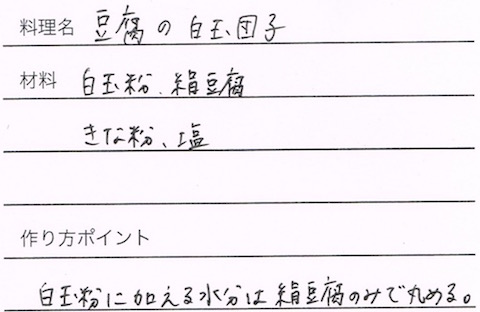 料理名 豆腐の白玉団子
材料 白玉粉、絹豆腐
きな粉、塩
作り方ポイント
白玉粉に加える水分は絹豆腐のみで丸める。